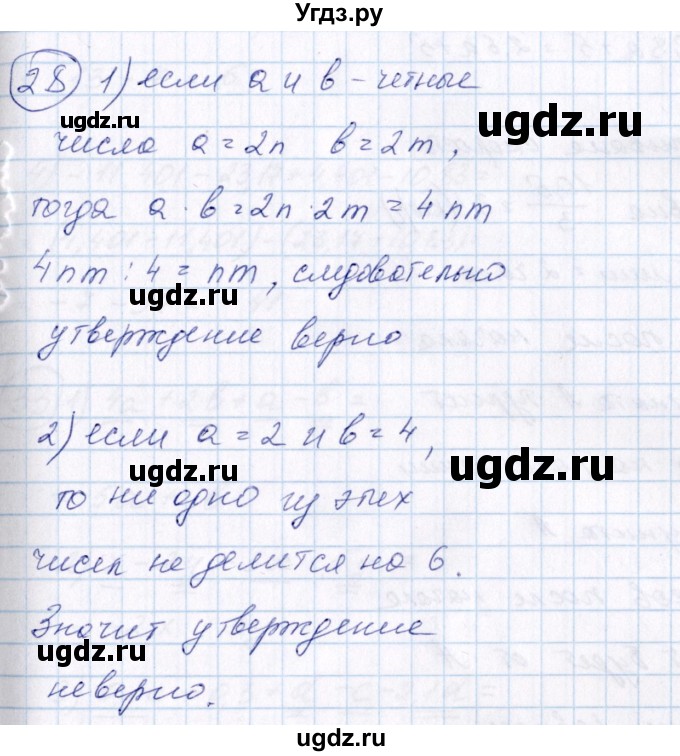 Угдз.ру
28 1) если a и в - четные
ugdz.ru
числа a = 2n в = 2m,
тогда a · в = 2n · 2m = 4nm
4nm : 4 = nm, следовательно
ugdz.ru
ugdz.ru
утверждение верно
2) если a = 2 и в = 4,
ugdz.ru
ugdz.ru
то ни одно из этих
чисел не делится на 6.
Значит утверждение
ugdz.ru
неверно.
ugdz.ru